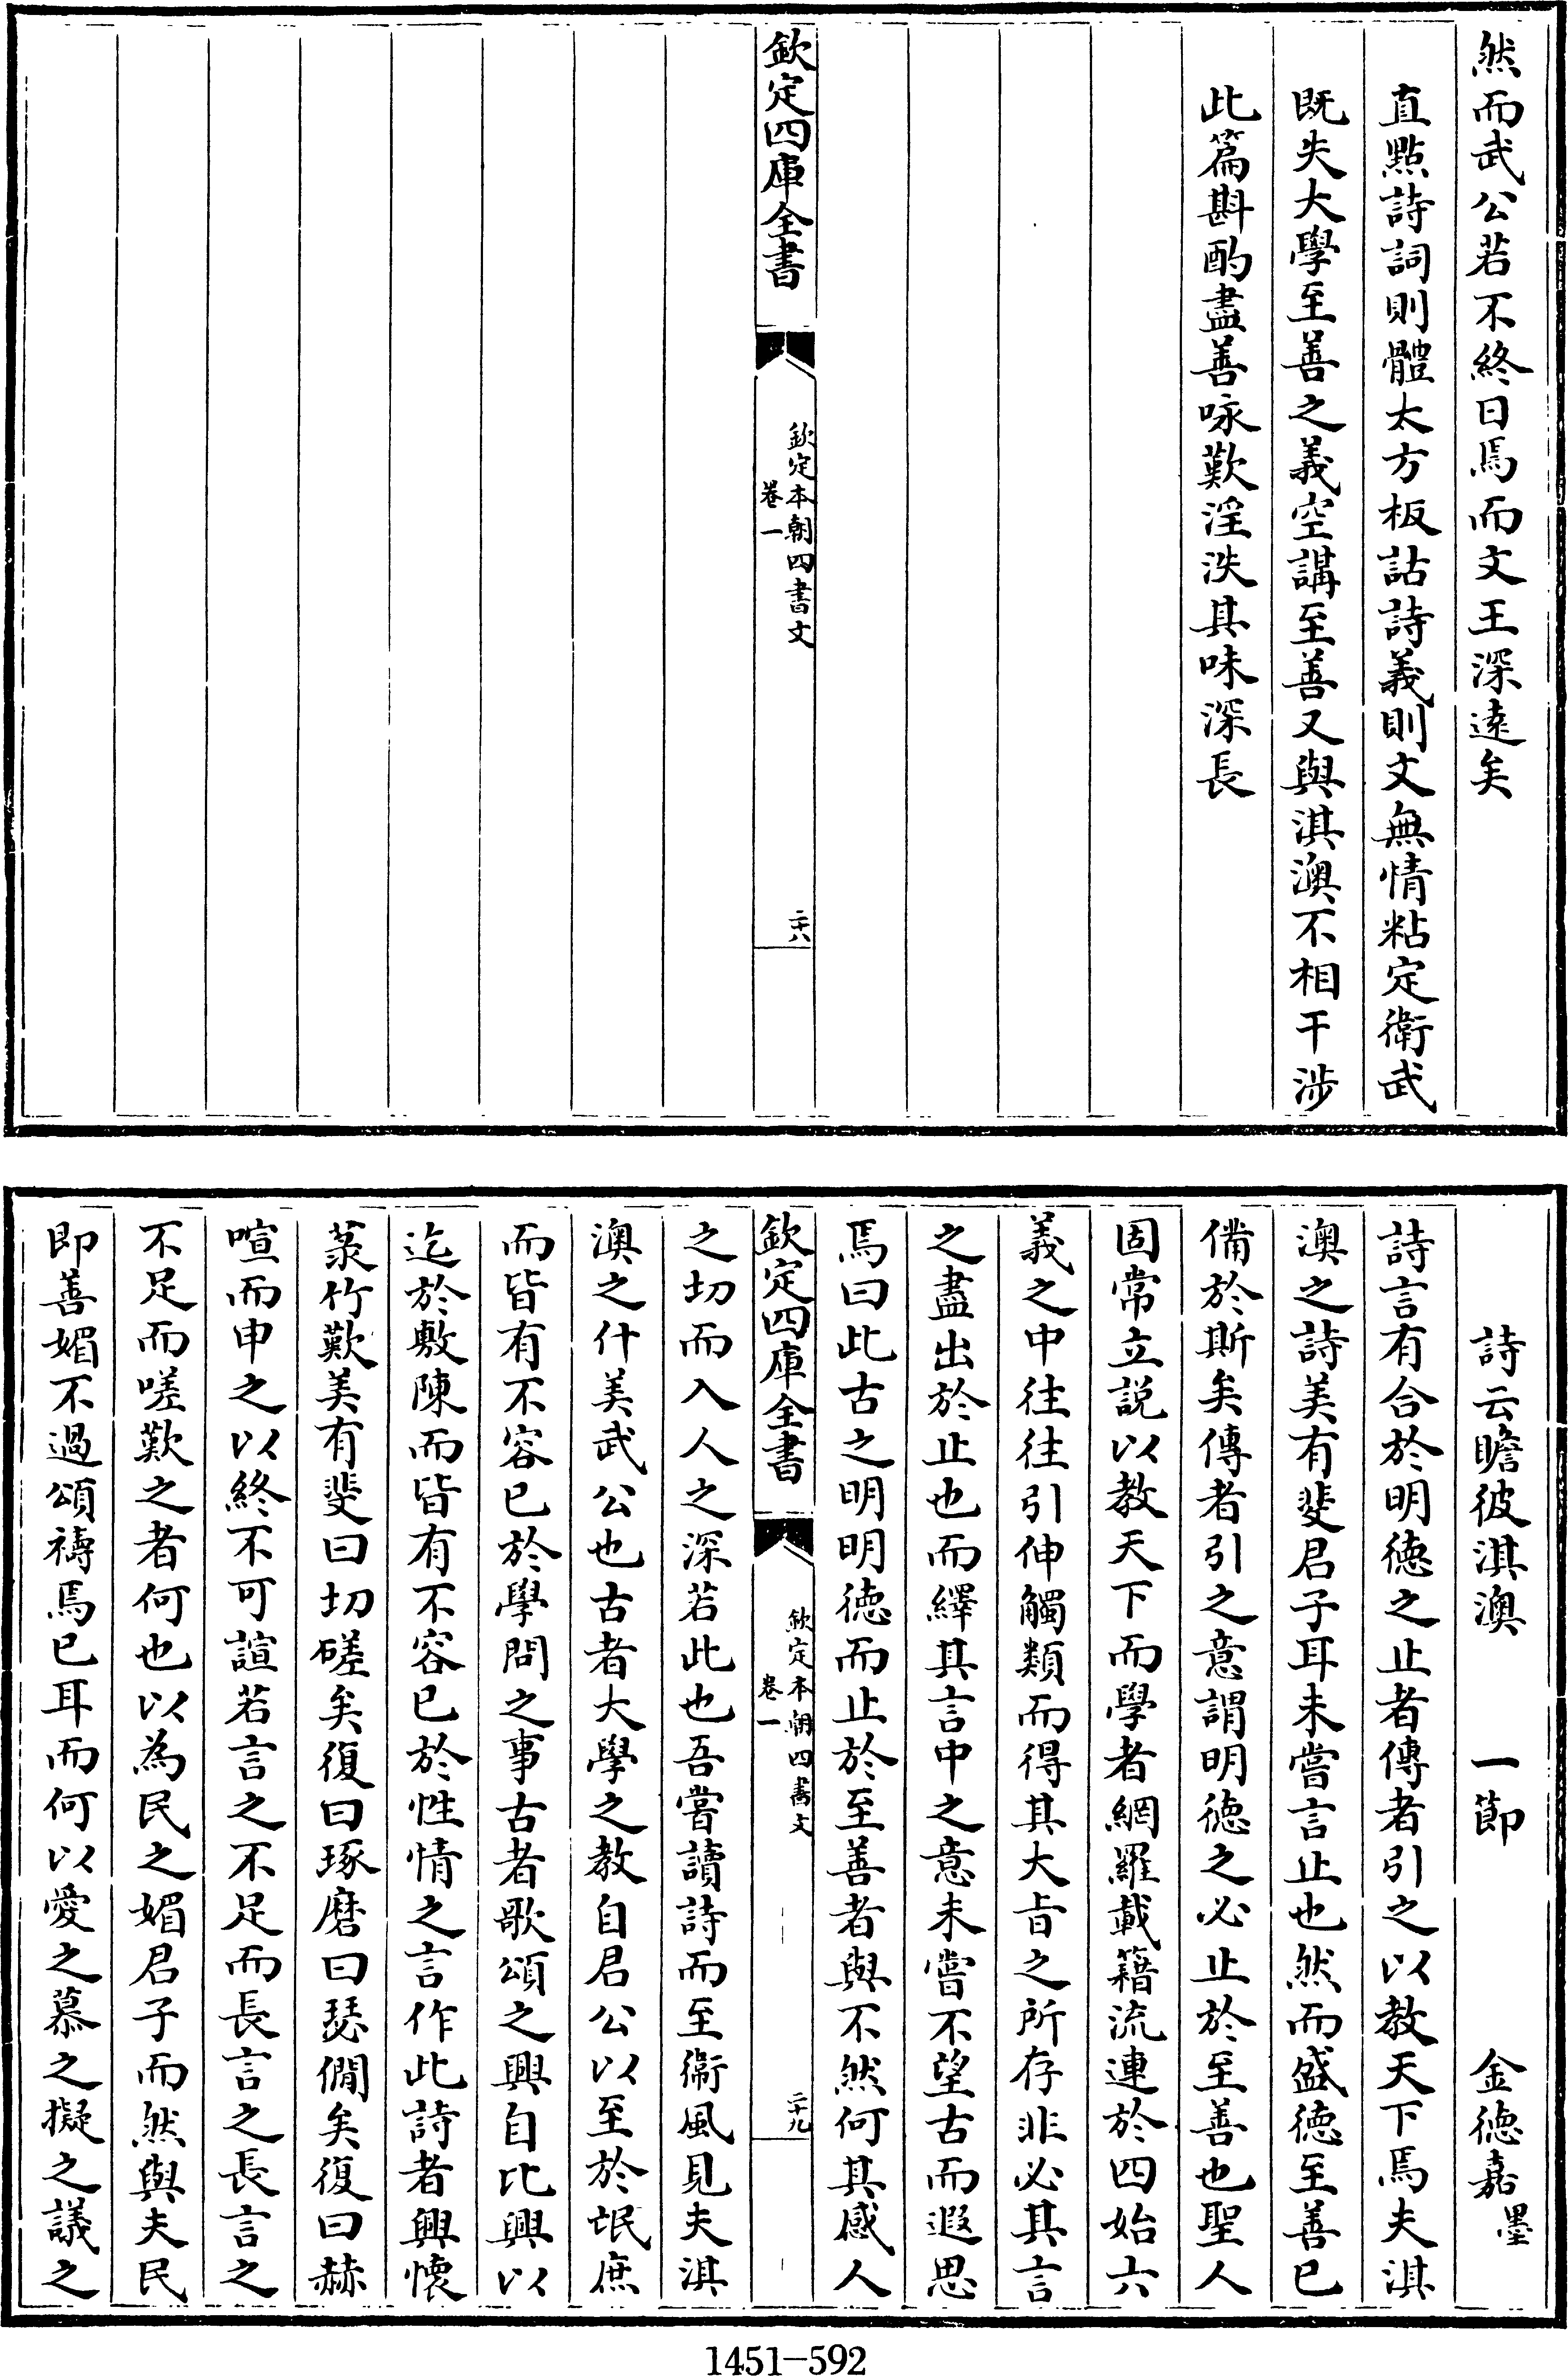 然而武公若不終日焉而文王深遠矣
直點詩詞則體太方板詁詩義則文無情粘定衛武
既失大學至善之義空講至善又與淇澳不相干涉
此篇斟酌盡善咏歎淫泆其味深長
欽定四庫全書
欽定本朝四書文
卷一
二十八
詩云瞻彼淇澳 一節 金徳嘉墨
詩言有合於明徳之止者傳者引之以教天下焉夫淇
澳之詩美有斐君子耳未嘗言止也然而盛徳至善已
備於斯矣傳者引之意謂明徳之必止於至善也聖人
固常立説以教天下而學者網羅載籍流連於四始六
義之中往往引伸觸類而得其大旨之所存非必其言
之盡出於止也而繹其言中之意未嘗不望古而遐思
焉曰此古之明明徳而止於至善者與不然何其感人
欽定四庫全書
欽定本朝四書文
卷一
二十九
之切而入人之深若此也吾嘗讀詩而至衛風見夫淇
澳之什美武公也古者大學之教自君公以至於氓庶
而皆有不容已於學問之事古者歌頌之興自比興以
迄於敷陳而皆有不容已於性情之言作此詩者興懷
菉竹歎美有斐曰切磋矣復曰琢磨曰瑟僩矣復曰赫
喧而申之以終不可諠若言之不足而長言之長言之
不足而嗟歎之者何也以為民之媚君子而然與夫民
即善媚不過頌禱焉已耳而何以愛之慕之擬之議之
1451-592